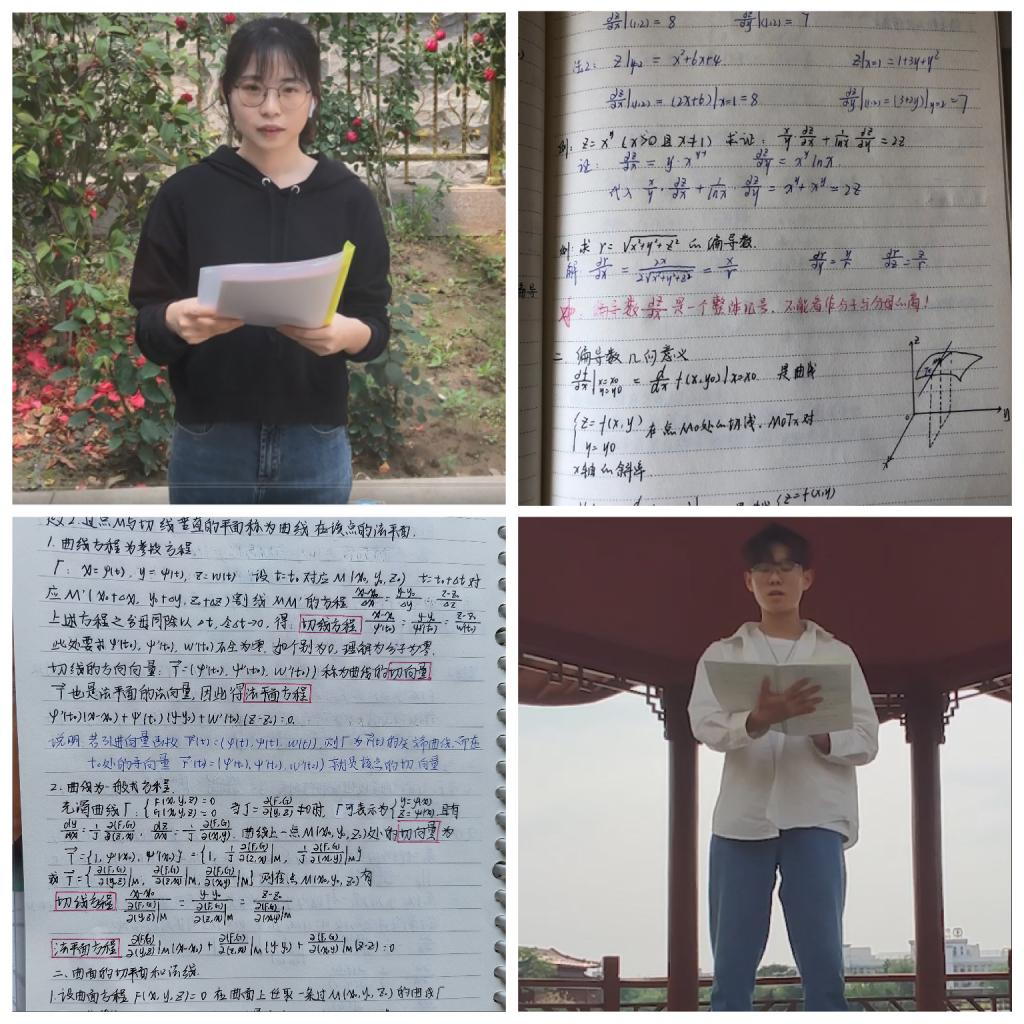 dz/dx|(1,2) = 8 dz/dy|(1,2) = 7
法2: z|y=2 = x²+6x+4 z|x=1 = 1+3y+y²
dz/dx|(1,2) = (2x+6)|x=1 = 8 dz/dy|(1,2) = (3+2y)|y=2 = 7
例: z = x^y (x>0 且 x≠1) 求证: x/y · dz/dx + 1/lnx dz/dy = 2z
证: dz/dx = y·x^(y-1) dz/dy = x^y lnx
代入 x/y · dz/dx + 1/lnx · dz/dy = x^y + x^y = 2z
例: 求 r = √(x²+y²+z²) 的偏导数.
解 dr/dx = 2x/(2√(x²+y²+z²)) = x/r dr/dy = y/r dr/dz = z/r
偏导数 dz/dx 是一个整体记号, 不能看作分子与分母的商!
偏导
二. 偏导数几何意义
df/dx|x=x0 y=y0 = d/dx f(x,y0)|x=x0 是曲线
{z=f(x,y) y=y0 在点M0处的切线, M0Tx对
x轴的斜率
z
y
x
0
{z=f(x,y)
过点M与切线垂直的平面称为曲线在该点的法平面.
1. 曲线方程为参数方程
Γ: x=φ(t), y=ψ(t), z=w(t) 设 t=t₀ 对应 M(x₀, y₀, z₀) t=t₀+Δt 对
应 M'(x₀+Δx, y₀+Δy, z₀+Δz) 割线 MM' 的方程 (x-x₀)/Δx = (y-y₀)/Δy = (z-z₀)/Δz
上述方程之分母同除以 Δt, 令Δt→0, 得: 切线方程 (x-x₀)/φ'(t₀) = (y-y₀)/ψ'(t₀) = (z-z₀)/w'(t₀)
此处要求 φ'(t₀), ψ'(t₀), w'(t₀) 不全为零. 如个别为0, 理解为分子为零.
切线的方向向量: T=(φ'(t₀), ψ'(t₀), w'(t₀)) 称为曲线的切向量
T 也是法平面的法向量, 因此得法平面方程
φ'(t₀)(x-x₀)+ψ'(t₀)(y-y₀)+w'(t₀)(z-z₀)=0.
说明 若引进向量函数 r(t)=(φ(t), ψ(t), w(t)), 则Γ为r(t)的矢端曲线, 而在
t₀处的导向量 r'(t₀)=(φ'(t₀), ψ'(t₀), w'(t₀)) 就是该点的切向量
2. 曲线为一般式方程.
光滑曲线Γ: {F(x,y,z)=0 G(x,y,z)=0 当 J=∂(F,G)/∂(y,z)≠0时, Γ可表示为{y=φ(x) z=ψ(x), 且有
dy/dx = 1/J ∂(F,G)/∂(z,x), dz/dx = 1/J ∂(F,G)/∂(x,y). 曲线上一点M(x₀,y₀,z₀)处的切向量为
T={1, φ'(x₀), ψ'(x₀)} = {1, 1/J ∂(F,G)/∂(z,x)|M, 1/J ∂(F,G)/∂(x,y)|M}
或 T={∂(F,G)/∂(y,z)|M, ∂(F,G)/∂(z,x)|M, ∂(F,G)/∂(x,y)|M} 则在点M(x₀,y₀,z₀)有
切线方程 (x-x₀)/(∂(F,G)/∂(y,z)|M) = (y-y₀)/(∂(F,G)/∂(z,x)|M) = (z-z₀)/(∂(F,G)/∂(x,y)|M)
法平面方程 ∂(F,G)/∂(y,z)|M (x-x₀) + ∂(F,G)/∂(z,x)|M (y-y₀) + ∂(F,G)/∂(x,y)|M (z-z₀)=0
二. 曲面的切平面和法线.
1. 设曲面方程 F(x,y,z)=0 在曲面上任取一条过M(x₀,y₀,z₀)的曲线Γ